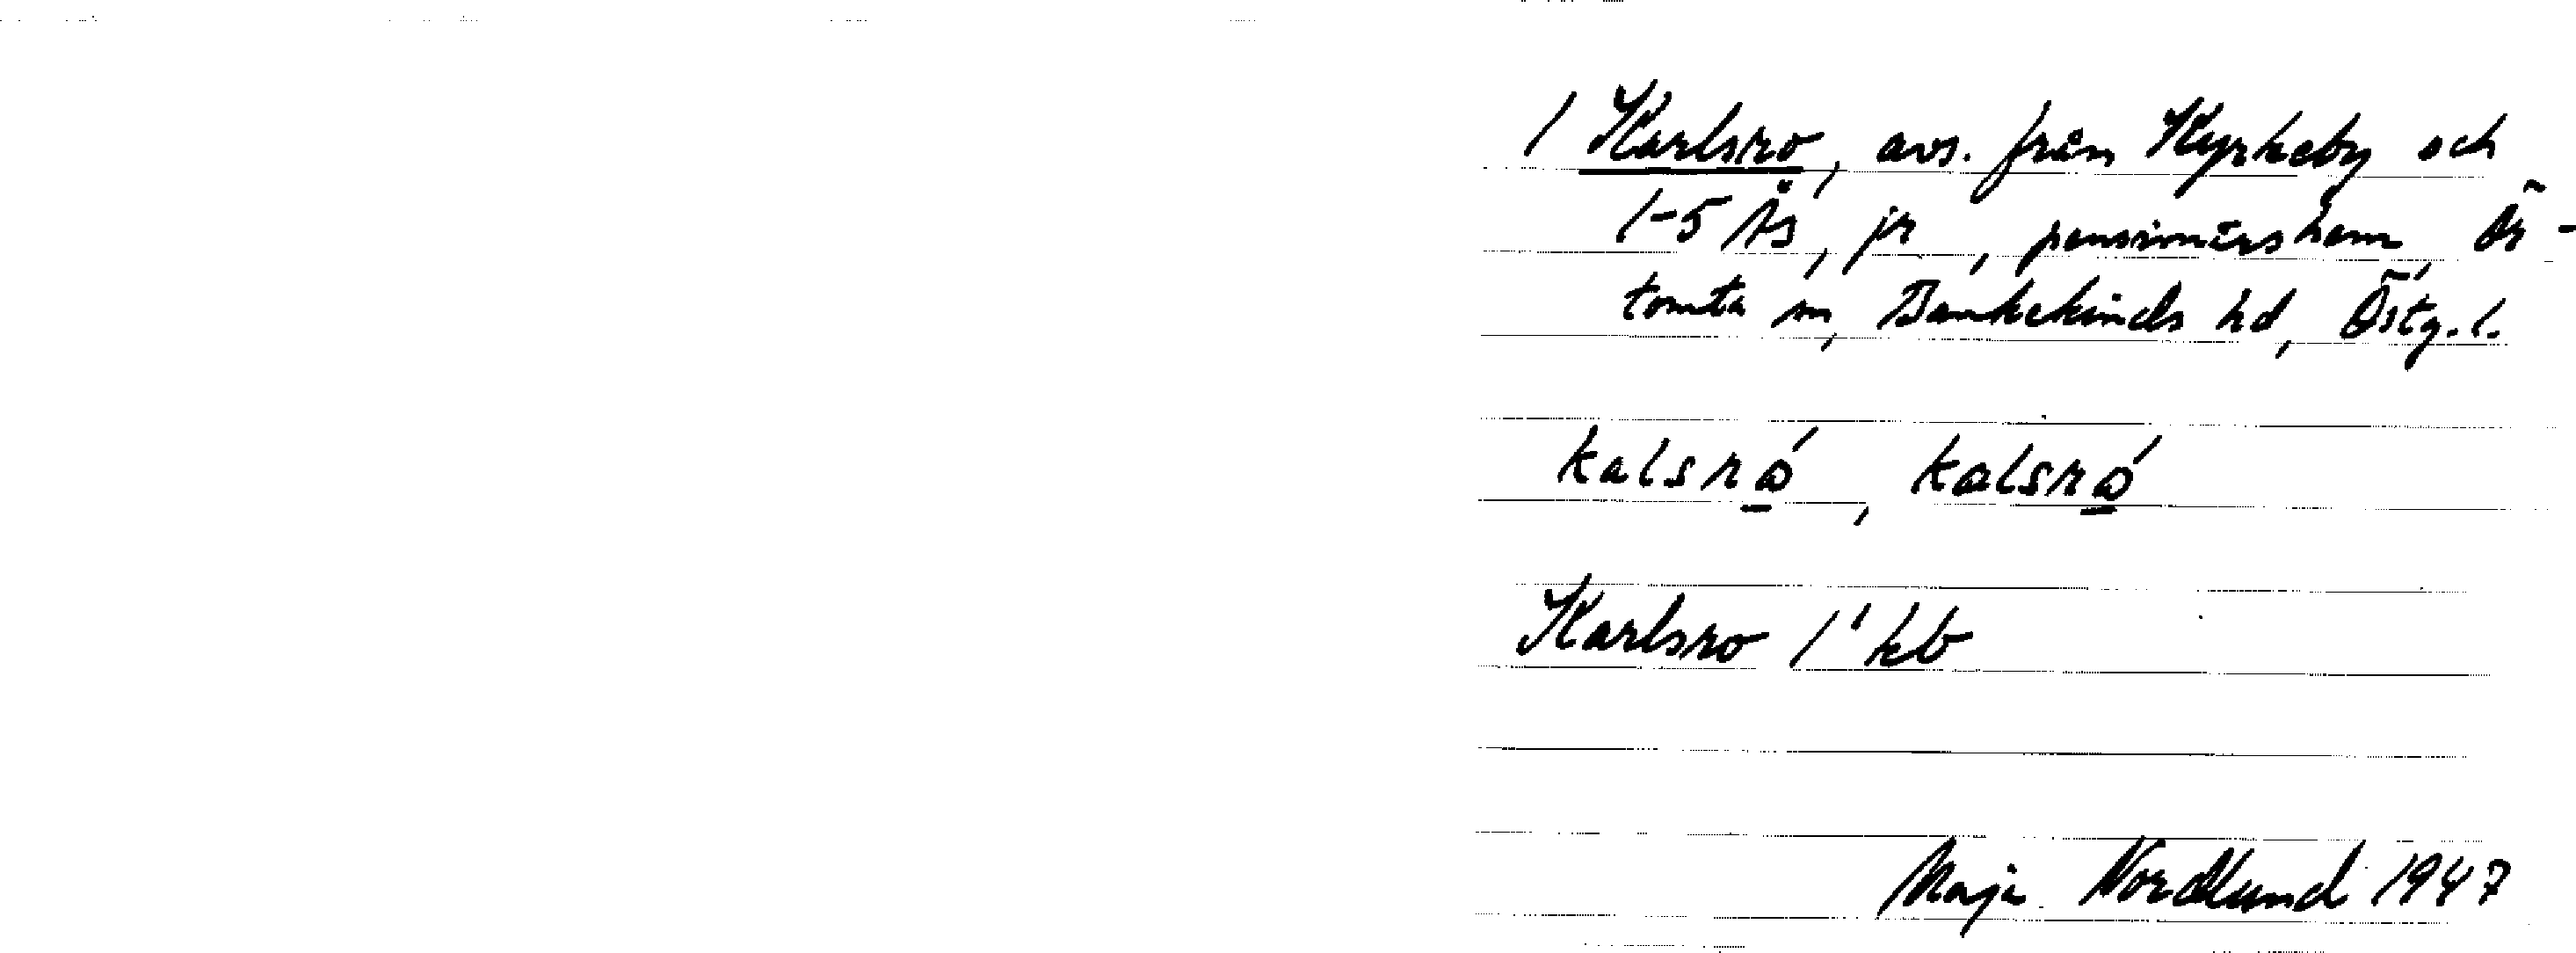 1 Karlsro, avs. från Kyrkeby och
1-5 Ås, jr, pensionärshem, Ör-
tomta sn, Bankekinds hd, Östg. l.
kalsró, kalsró
Karlsro 1' kb
Maja Nordlund 1947